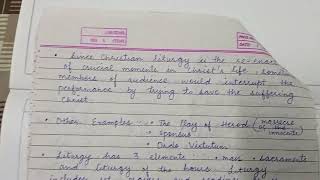 • Since Christian liturgy is the re-enac
of crucial moments in Christ's life, some
members of audience would interrupt the
performance by trying to save the suffering
Christ.
• Other Examples : • The Play of Herod (massacre of the innocents)
• Sponsus
• Ordo Virtutum
• Liturgy has 3 elements : mass, sacraments
and liturgy of the hours. Liturgy
includes